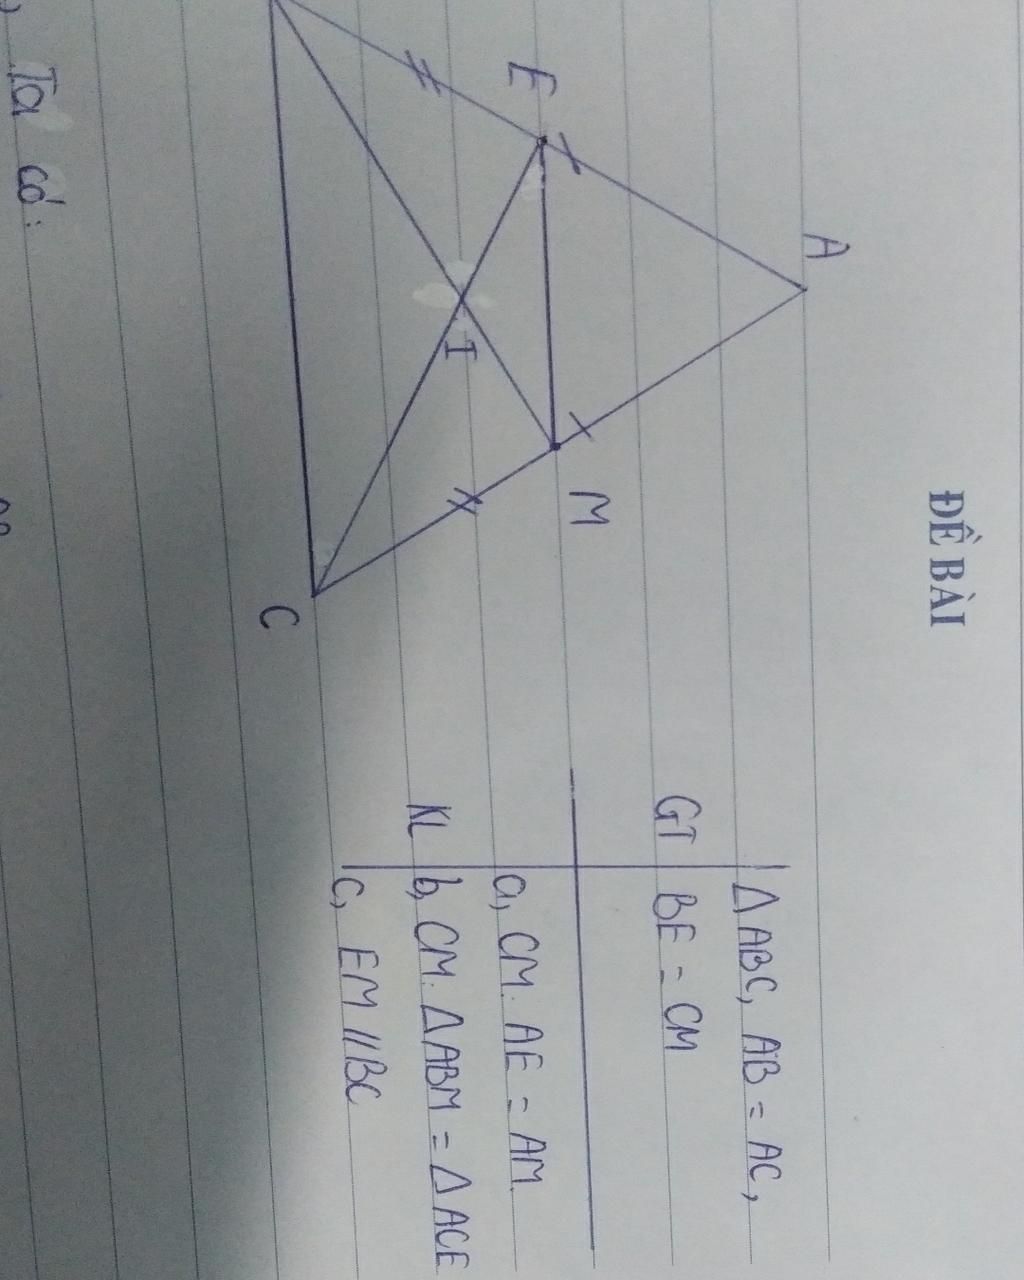 ĐỀ BÀI
A
E
M
I
C
Δ ABC, AB = AC,
GT BE = CM
a, CM. AE = AM.
KL b, CM. Δ ABM = Δ ACE
c, EM // BC
Ta có: